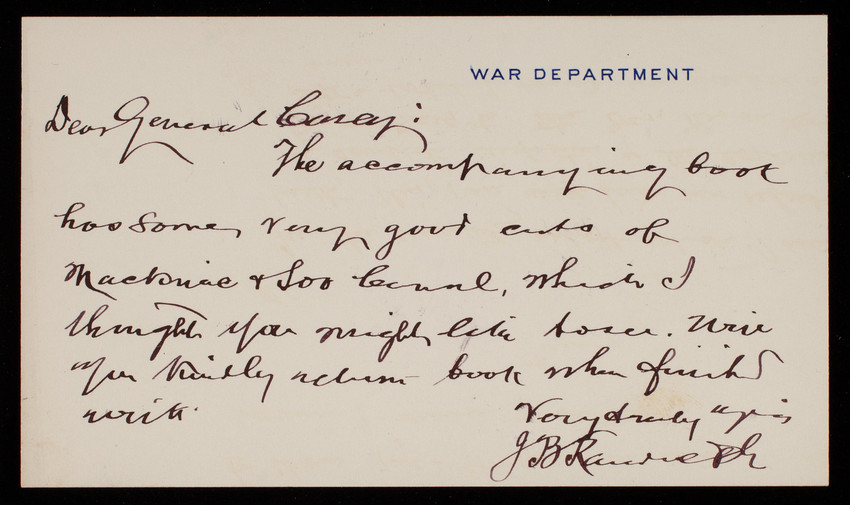 WAR DEPARTMENT
Dear General Casey:
The accompanying book
has some very good cuts of
Mackinac & Soo Canal, which I
thought you might like to see. Will
you kindly return book when finished
with.
Very truly yours
J B Randolph